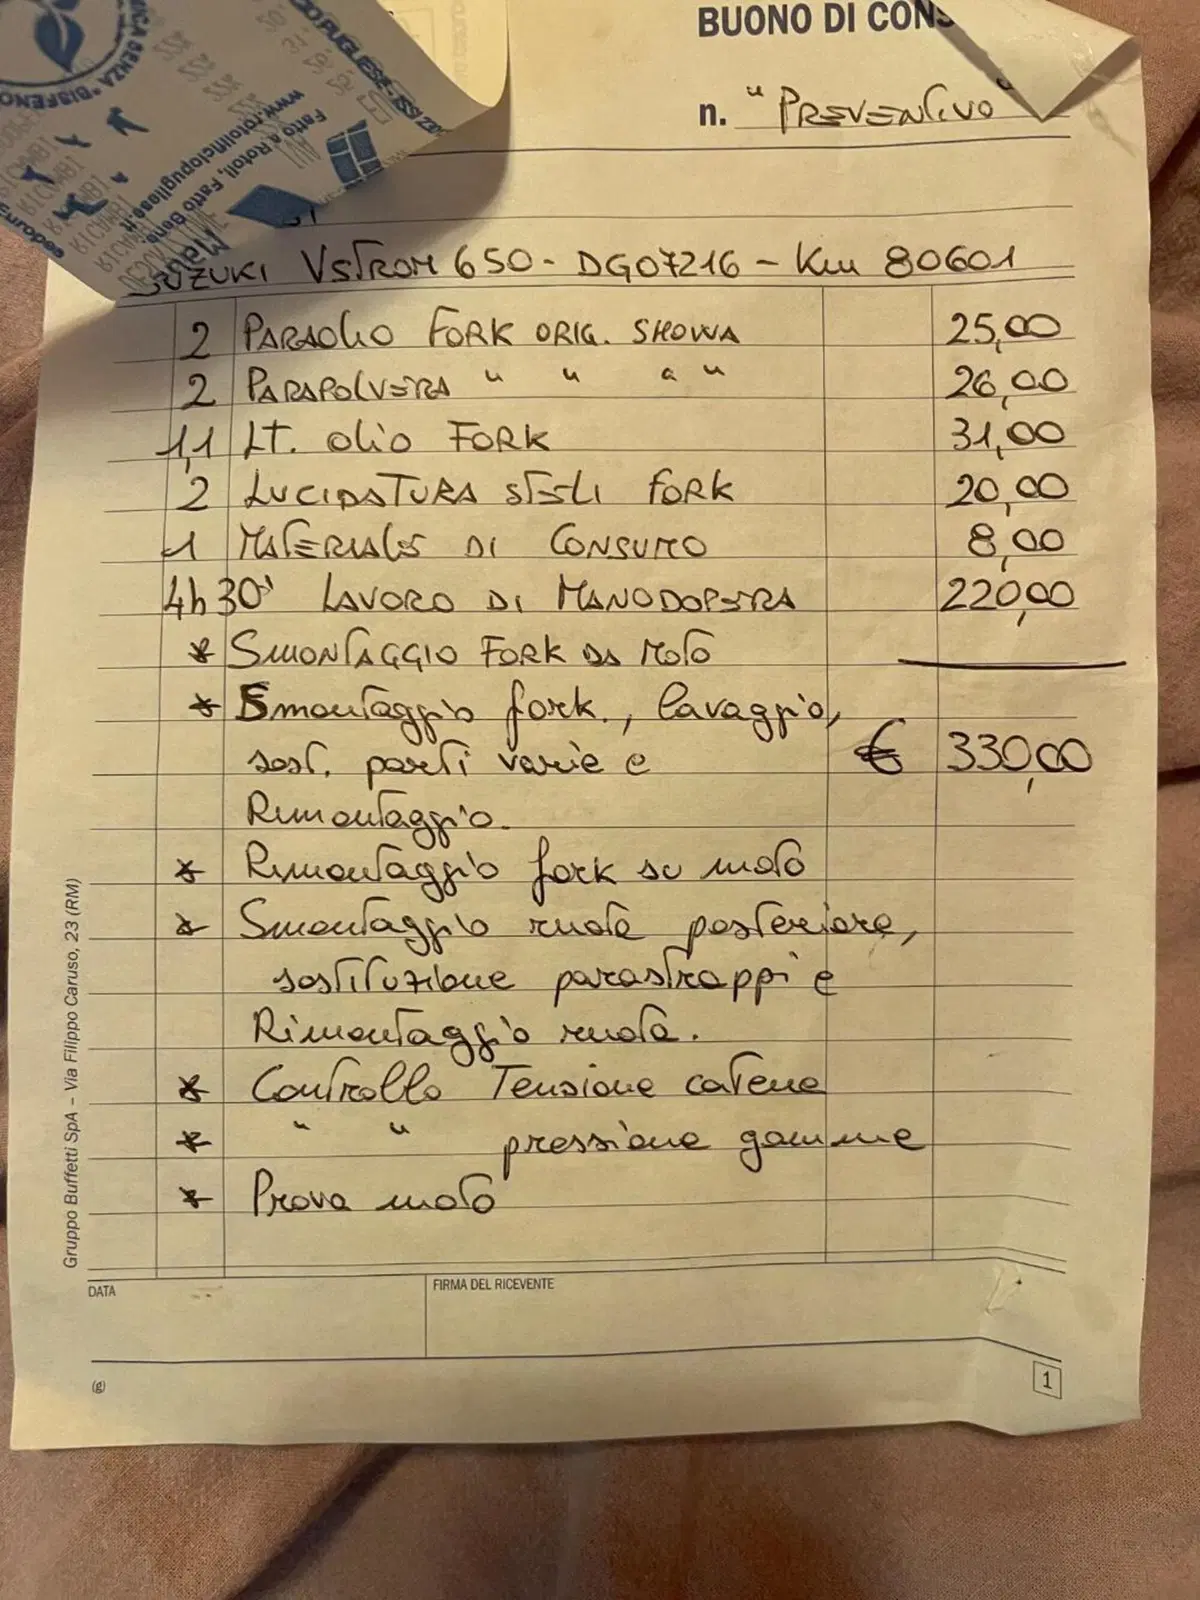 BUONO DI CONS
n. "PREVENTIVO"
SUZUKI VSTROM 650 - DG07216 - Km 80601
2 PARAOLIO FORK ORIG. SHOWA 25,00
2 PARAPOLVERA " " " " 26,00
1,1 LT. OLIO FORK 31,00
2 LUCIDATURA STELI FORK 20,00
1 MATERIALE DI CONSUMO 8,00
4h 30' LAVORO DI MANODOPERA 220,00
* SMONTAGGIO FORK DA MOTO
* Smontaggio fork., lavaggio,
sost. parti varie e € 330,00
Rimontaggio.
* Rimontaggio fork su moto
* Smontaggio ruota posteriore,
sostituzione parastrappi e
Rimontaggio ruota.
* Controllo Tensione catena
* " " pressione gomme
* Prova moto
DATA
FIRMA DEL RICEVENTE
(g)
1
Gruppo Buffetti SpA – Via Filippo Caruso, 23 (RM)
Fatto a Rotoli, Fatto Bene
www.rotolificiopugliese.it
RICAMBI
RICAMBI
RICAMBI